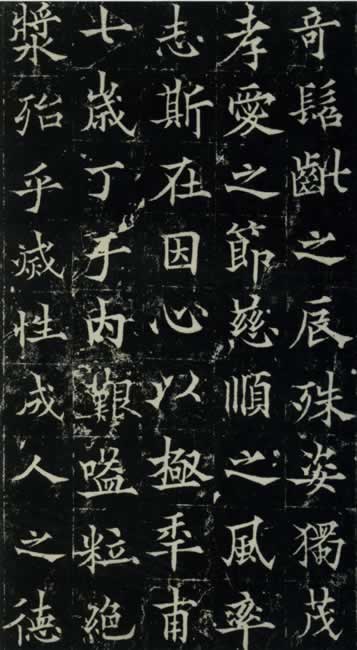 奇髫齔之辰殊姿獨茂
孝愛之節慈順之風率
志斯在因心以極年甫
七歲丁于內艱嗌粒絕
漿殆乎滅性成人之德